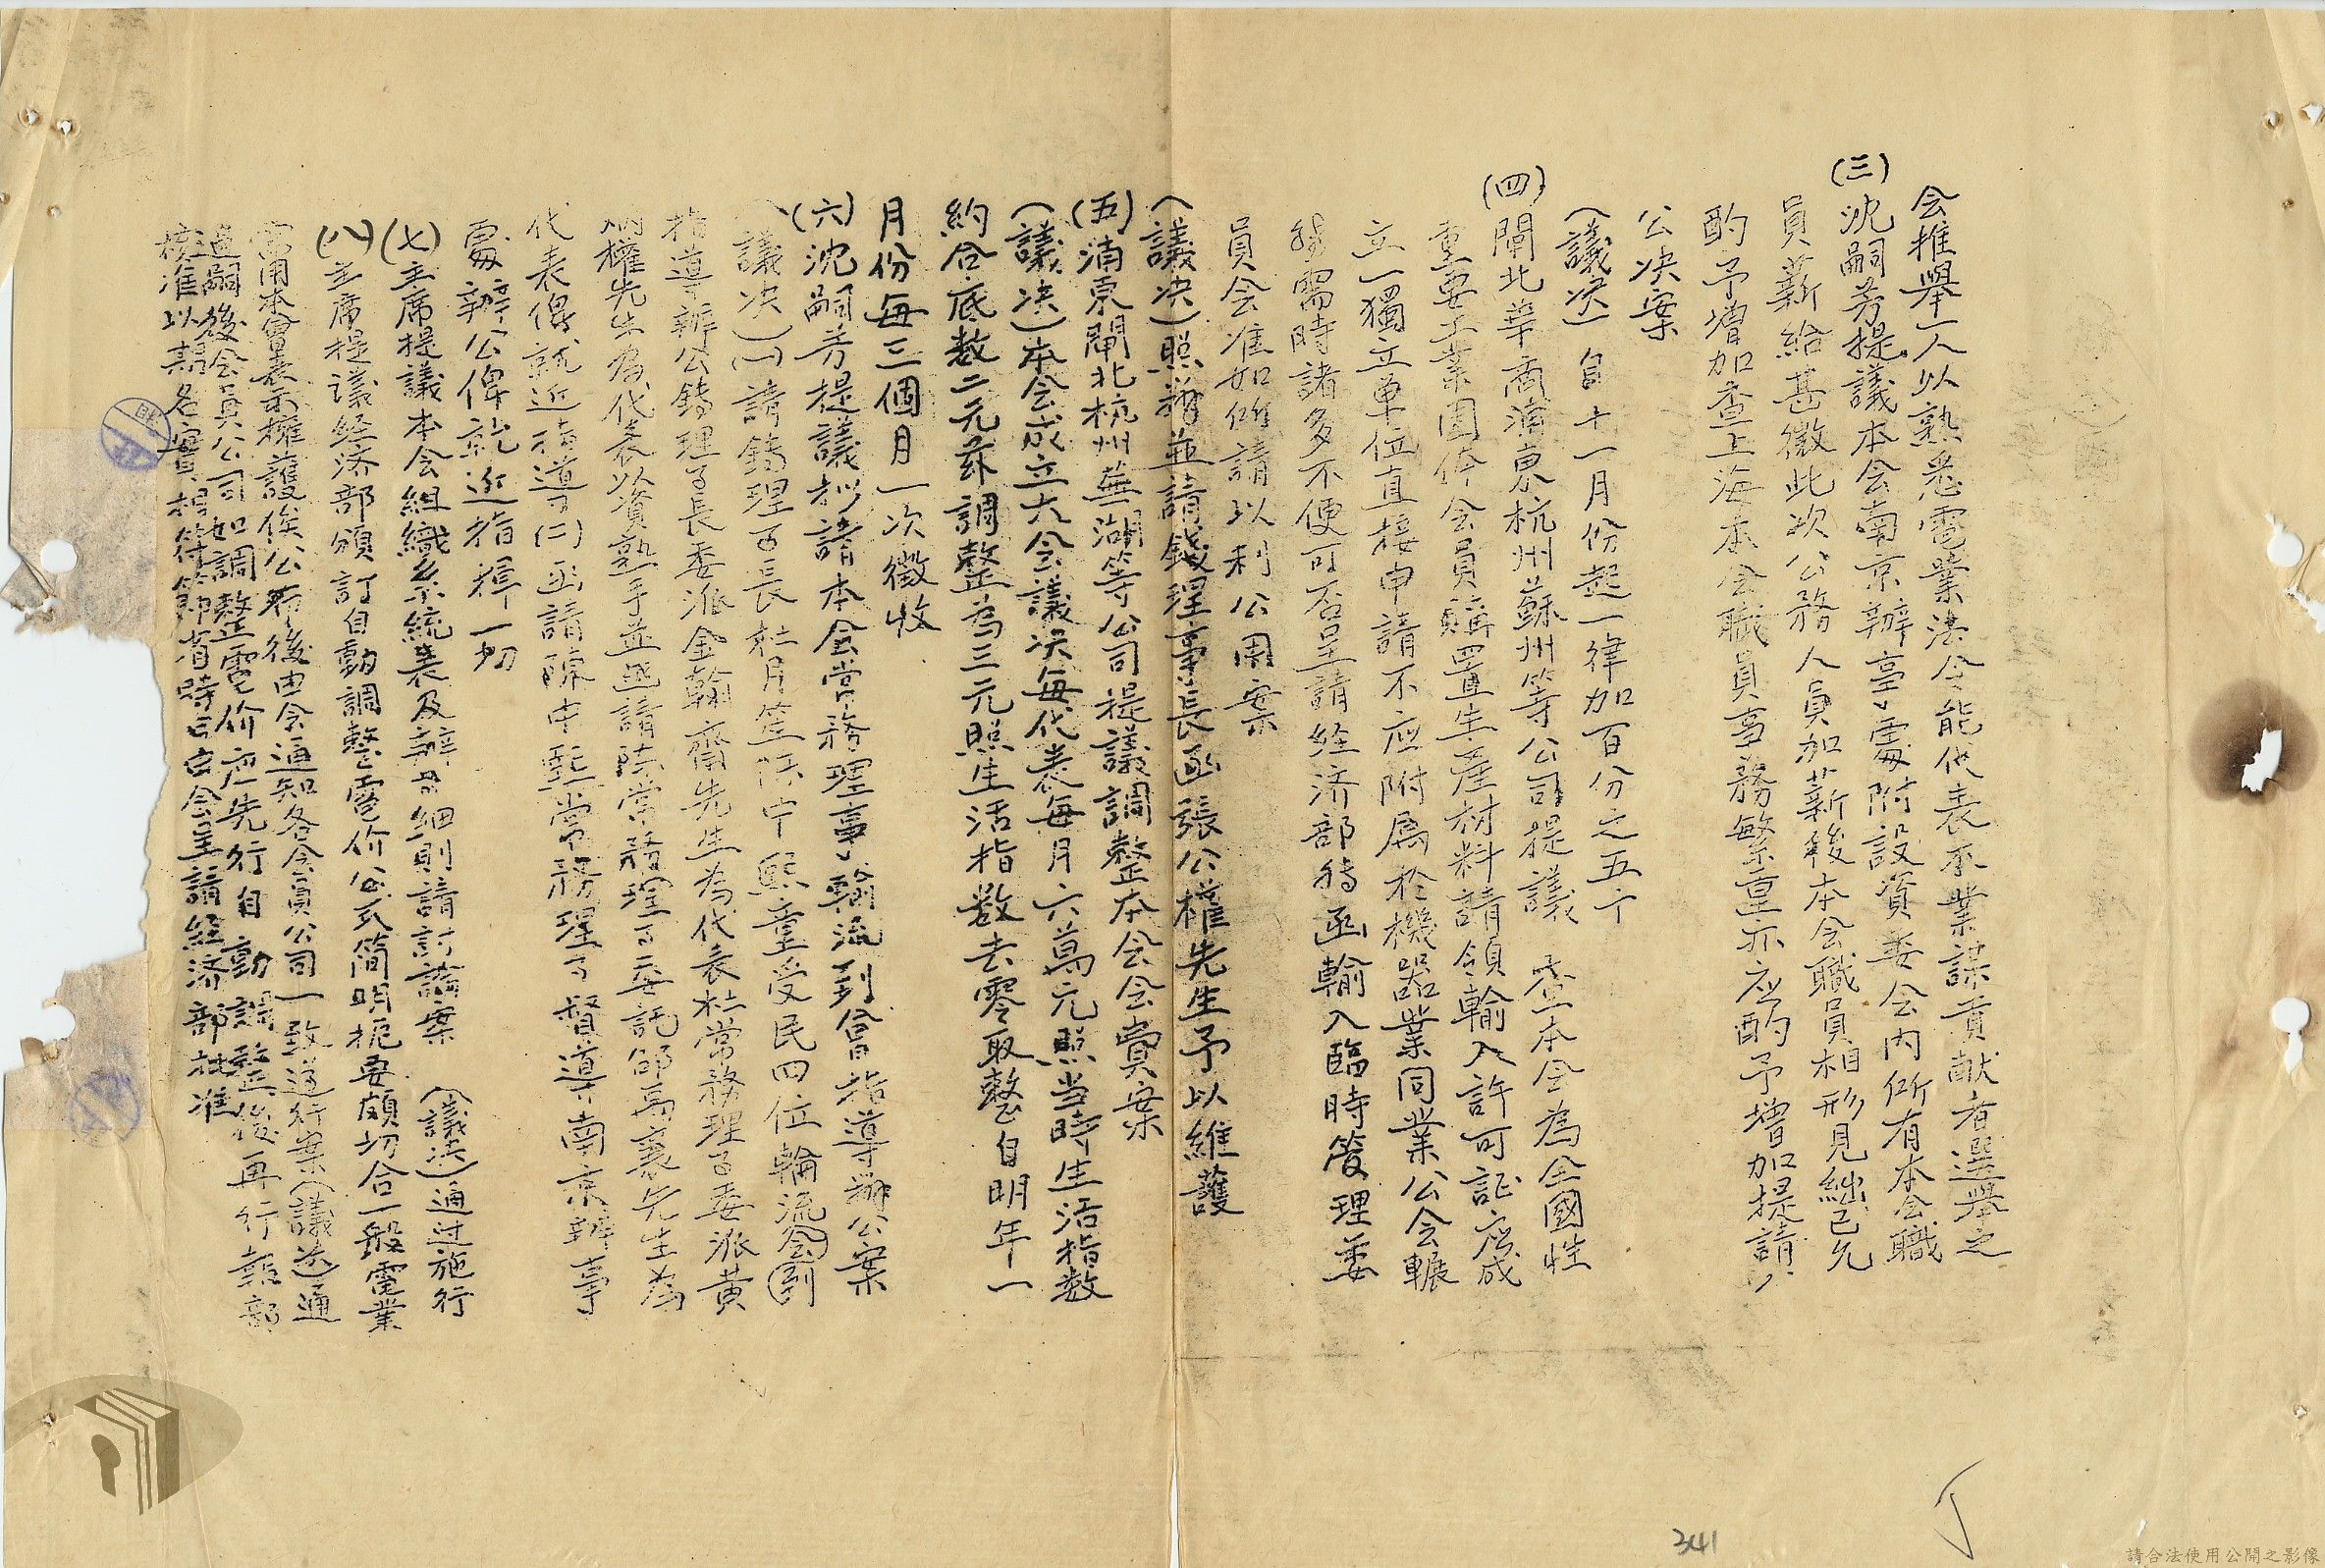 会推舉一人以熟悉電業法令能代表本業謀貢献者選舉之
(三)沈嗣芳提議本会南京辦事處附設資委会內所有本会職
員薪給甚微此次公務人員加薪後本会職員相形見絀已允
酌予增加查上海本会職員事務繁重亦应酌予增加提請公
公決案
(議決)自十一月份起一律加百分之五十
(四)閘北華商浦東杭州蘇州等公司提議 查本会為全國性
重要工業團体会員購置生產材料請領輸入許可証应成
立一獨立單位直接申請不应附屬於機器業同業公会輾
需時諸多不便可否呈請経济部轉函輸入臨時管理委
員会准如所請以利公用案
(議決)照辦並請錢理事長函張公權先生予以維護
(五)浦東閘北杭州蕪湖等公司提議調整本会会費案
(議决)本会成立大会議决每代表每月六萬元照当時生活指数
約合底数二元茲調整為三元照生活指数去零取整自明年一
月份每三個月一次徵收
(六)沈嗣芳提議擬請本会常務理事輪流到會指導辦公案
議决(一)請錢理事長杜月笙陸中熙童受民四位輪流会到
指導辦公錢理事長委派金翰齋先生為代表杜常務理事委派黃
炳權先生為代表以資熟手並函請陸常務理事委託邰爲襄先生為
代表俾就近指導(二)函請陳中熙常務理事督導南京辦事
處辦公俾就近指揮一切
(七)主席提議本会組織系統表及辦事細則請討論案 (議決)通过施行
(八)主席提議経济部頒訂自動調整電价公式简明扼要頗切合一般電業
常用本會表示擁護俟公布後由会通知各会員公司一致遵行案(議决)通
過嗣後会員公司如調整電价应先行自動調整後再行報部
核准以期名實相符節省時日由会呈請経济部批准
341
請合法使用公開之影像